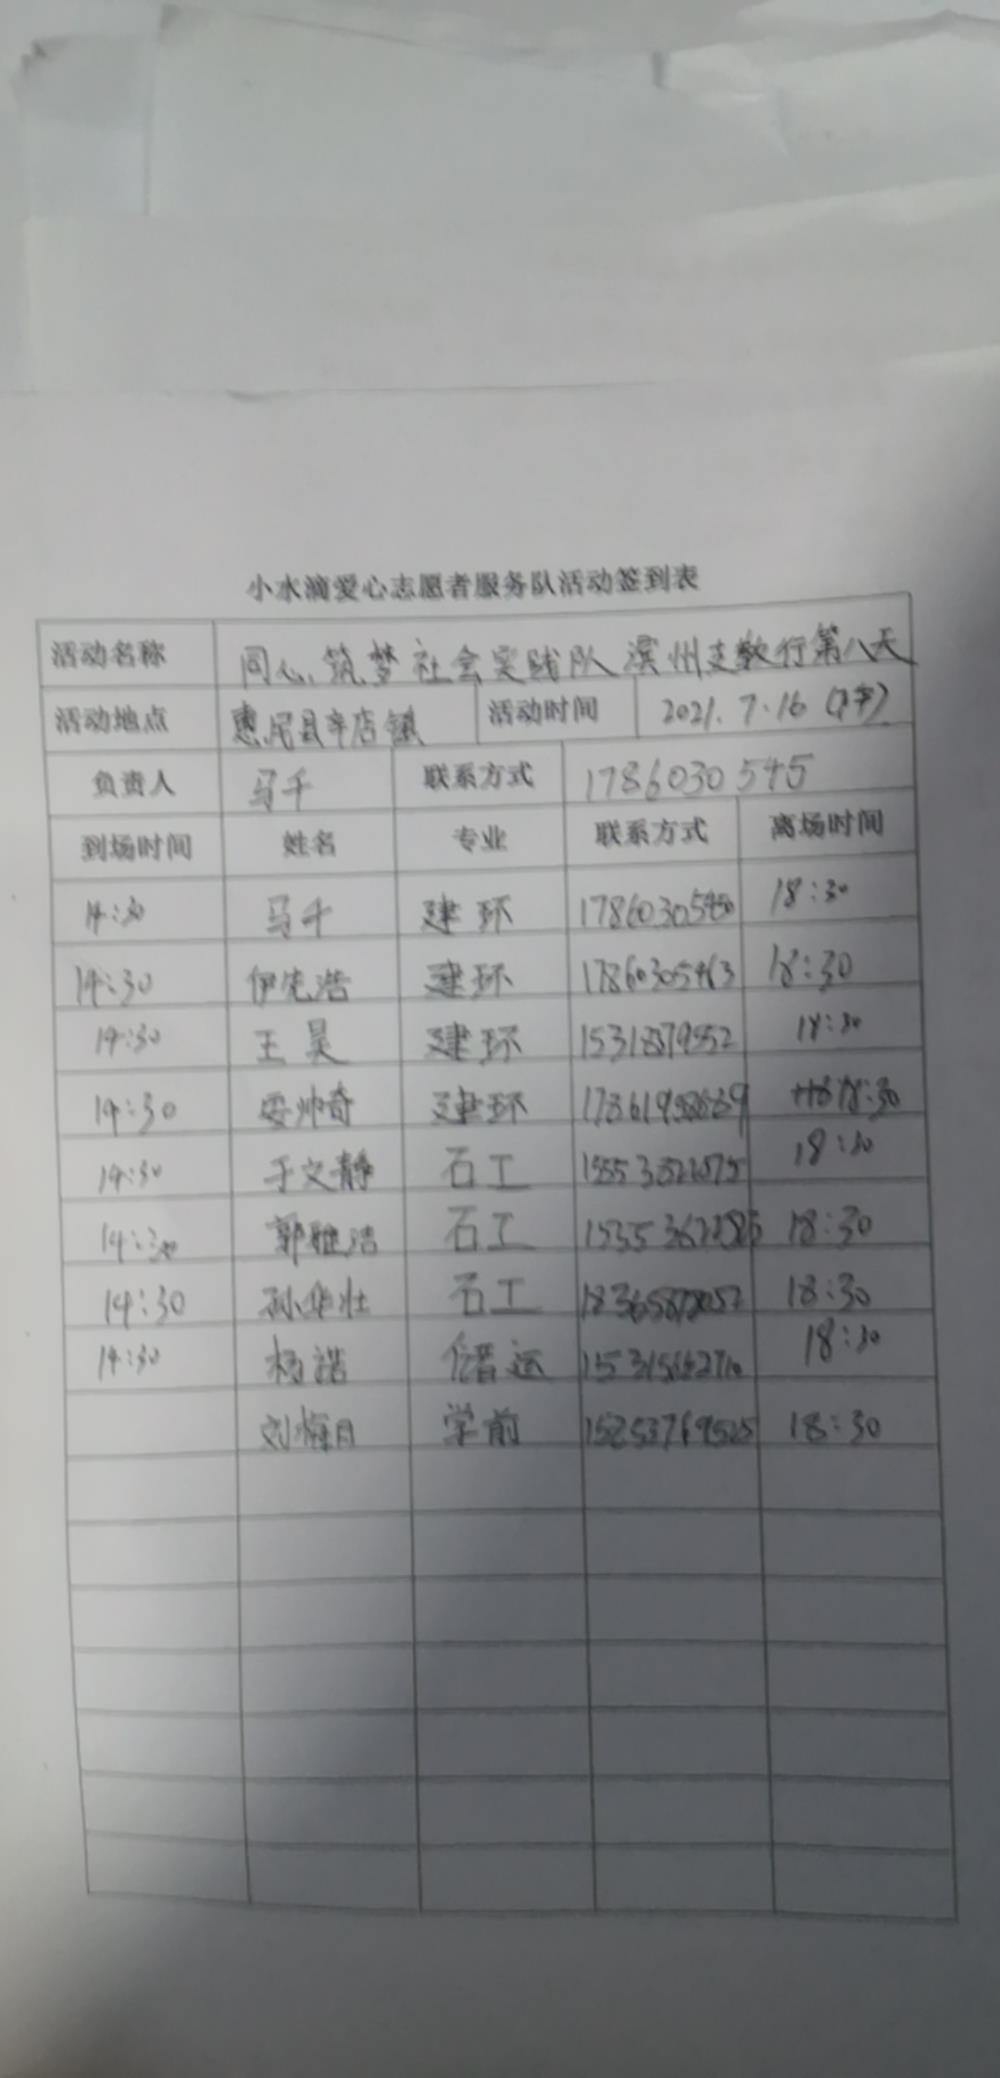 小水滴爱心志愿者服务队活动签到表
活动名称 同心筑梦社会实践队滨州支教行第八天
活动地点 惠民县辛店镇 活动时间 2021.7.16
负责人 马千 联系方式 1786030545
到场时间 姓名 专业 联系方式 离场时间
14:30 马千 建环 18:30
14:30 伊先浩 建环 17860305463 18:30
14:30 王昊 建环 18:30
14:30 安帅奇 建环 18:30
14:30 于文静 石工 18:30
14:30 郭雅洁 石工 18:30
14:30 孙华壮 石工 18:30
14:30 杨浩 储运 18:30
刘梅月 学前 18:30